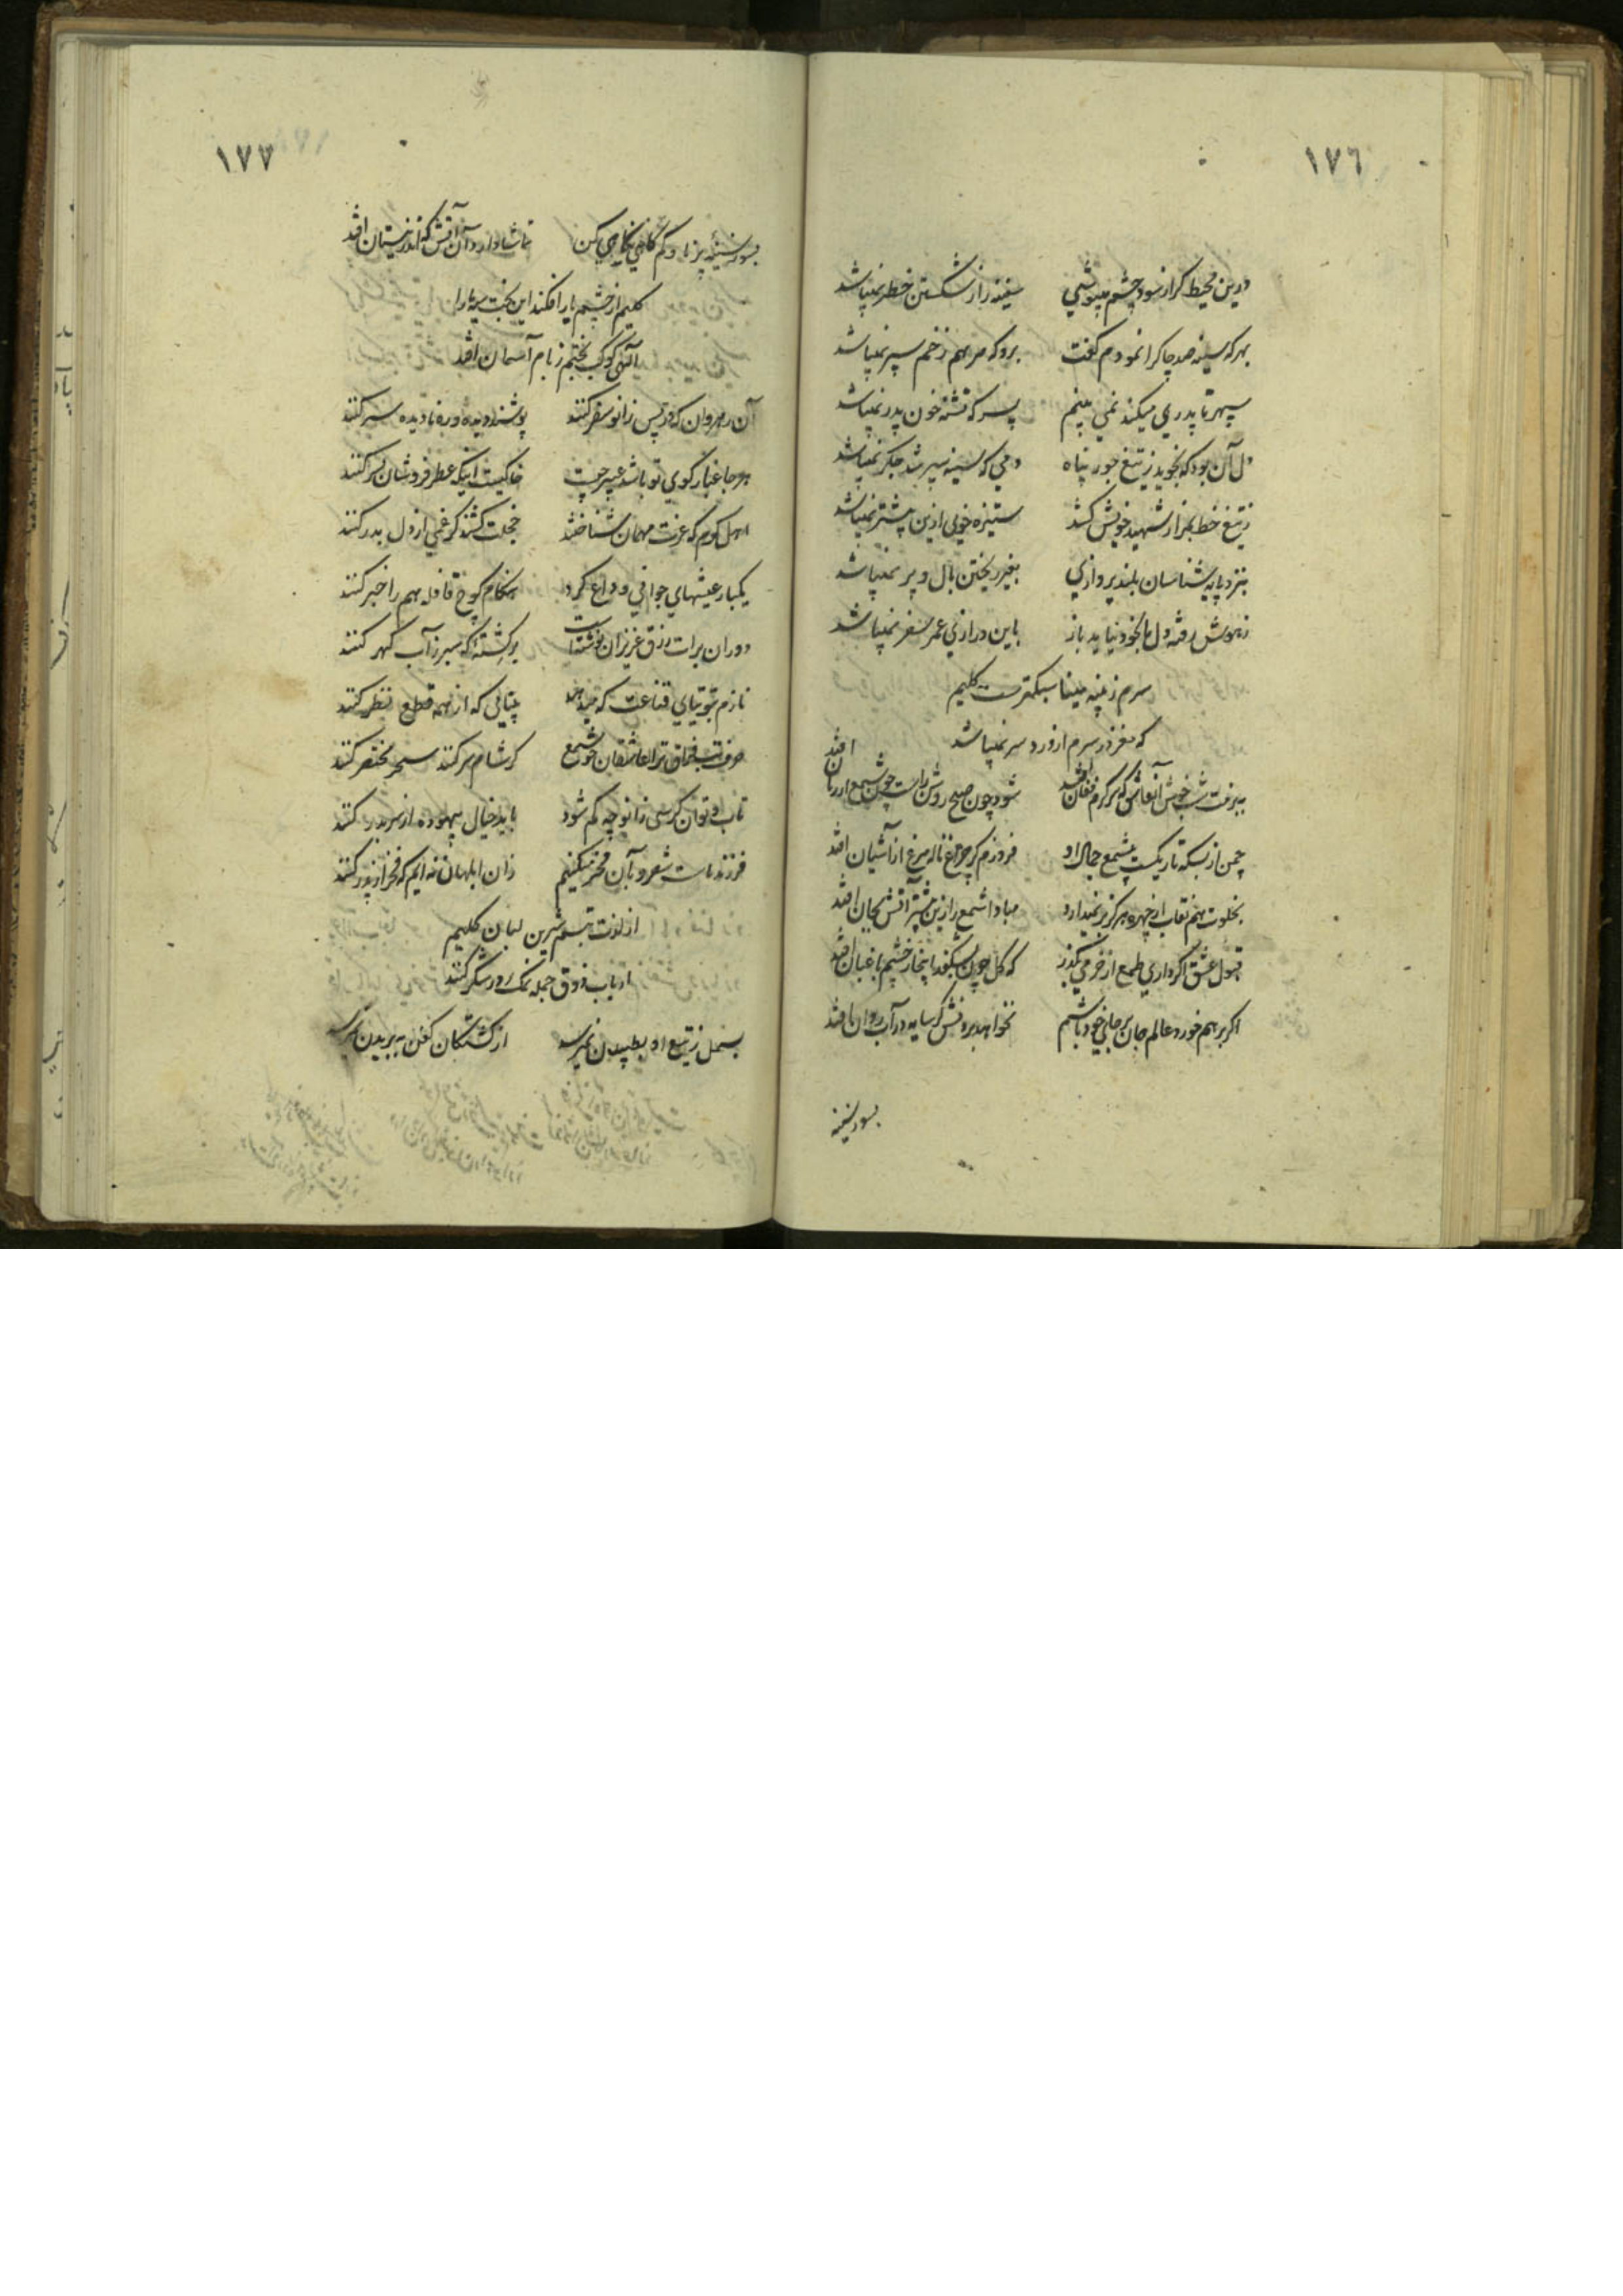 ١٧٦
درین محیط گر از سود چشم میپوشی سفینه را ز شکستن خطر نمیباشد
بهر که سینه صد چاک را نمودم گفت برو که مرهم زخم سپر نمیباشد
سپهر تا پدری میکند نمی بینم پسر که تشنه خون پدر نمیباشد
دل آن بود که نجوید ز تیغ جور پناه دمی که سینه سپر شد جگر نمیباشد
ز تیغ خط بمزار شهید خویش کشد ستیزه خویی ازین بیشتر نمیباشد
بنزد پایه شناسان بلند پروازی بغیر ریختن بال و پر نمیباشد
ز هوش رفته دل ما بخود نیاید باز باین درازی عمر سفر نمیباشد
سرم ز پنبه مینا سبکترست کلیم
که مغز در سرم از درد سر نمیباشد
شب خوش آنعاشق که سرگرم فغان افتد شود چون صبح روشن راست چون شمع از زبان افتد
چمن از بسکه تاریکست بیشمع جمال او فروزم گر چراغ ناله مرغ از آشیان افتد
بخلوت هم نقاب از چهره هرگز بر نمیدارد مبادا شمع را زین بیشتر آتش بجان افتد
قبول عشق اگر داری طمع از خرمی بگذر که گل چون بشکفد اینجا ز چشم باغبان افتد
اگر بر هم خورد عالم جان بر جای خود باشم نخواهد برد نقش گر سایه در آب روان افتد
بسوز سینه
١٧٧
بسوز سینه پر ناوکم گاهی نگاهی کن تماشا دارد آن آتش که اندر نیستان افتد
کلیم از چشم یار افکند این بخت سیه ما را
الهی کوکب بختم ز بام آسمان افتد
آن رهروان که در پس زانو سفر کنند پوشند دیده و ره نادیده سر کنند
هر جا غبار کوی تو باشد عبیر چیست خاکیست اینکه عطر فروشان بسر کنند
اهل کرم که عزت مهمان شناختند خجلت کشند گر غمی از دل بدر کنند
یکبار عیشهای جوانی وداع کرد هنگام کوچ قافله هم را خبر کنند
دوران برات رزق عزیزان نوشته است بر کشته که سبز ز آب گهر کنند
نازم بتوتیای قناعت که میدهد بینائی که از همه قطع نظر کنند
صرف شب فراق ترا عاشقان چو شمع گر شام سر کنند سحر مختصر کنند
تاب و توان گر سر زانو چه کم شود باید خیال بیهوده از سر بدر کنند
فرزند ماست شعر و بآن فخر میکنیم زان ابلهان نه ایم که فخر از پدر کنند
از لذت تبسم شیرین لبان کلیم
ارباب ذوق جمله نمک در شکر کنند
بسمل ز تیغ او بطپیدن نمیرسد از کشتگان کفن به بریدن نمیرسد